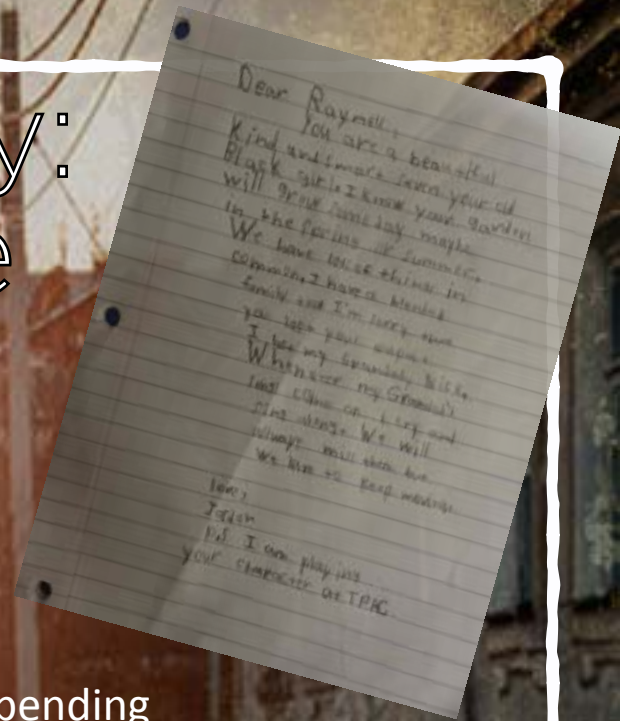 y:
e
Dear Raymell,
You are a beautiful
Kind and smart seven year old
Black girl. I know your garden
will grow someday maybe
in the spring or summer.
We have lots of things in
common. I have a blended
family and I'm sorry
you lost your
I lost my Grandaddy
Whenever my Grandaddy's
song come on I cry and
sing along. We will
always miss them but
We have to keep moving.
love,
Jordan
P.S I am playing
your character at TPAC
pending